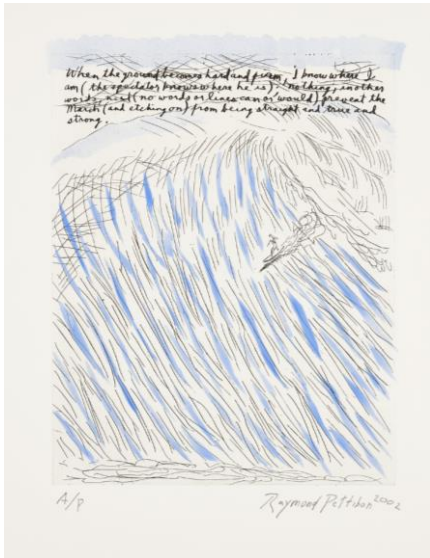 When the ground becomes hard and firm, I know where I
am (the spectator knows where he is). Nothing, in other
words, (no words or lines can or would) prevent the
March (and etching on) from being straight and true and
strong.
A/P
Raymond Pettibon 2002